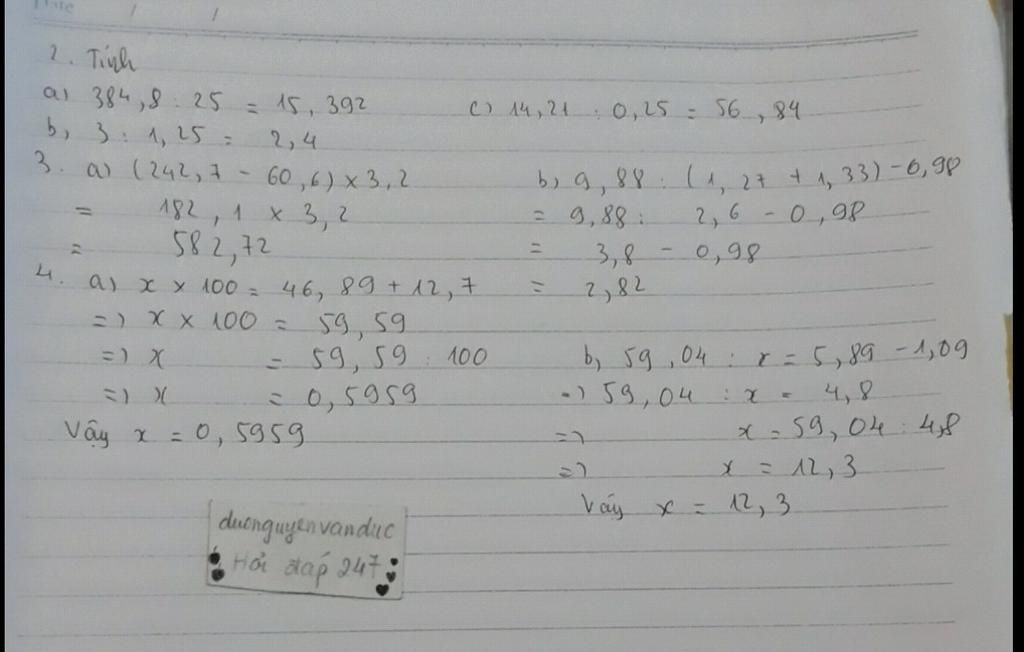 Date / /
2. Tính
a) 384,8 : 25 = 15,392 c) 14,21 : 0,25 = 56,84
b, 3 : 1,25 = 2,4
3. a) (242,7 - 60,6) x 3,2 b) 9,88 : (1,27 + 1,33) - 0,98
= 182,1 x 3,2 = 9,88 : 2,6 - 0,98
= 582,72 = 3,8 - 0,98
4. a) x x 100 = 46,89 + 12,7 = 2,82
=) x x 100 = 59,59
=) x = 59,59 : 100 b, 59,04 : x = 5,89 - 1,09
=) x = 0,5959 =) 59,04 : x = 4,8
Vậy x = 0,5959 =) x = 59,04 : 4,8
=) x = 12,3
Vậy x = 12,3
ducnguyenvanduc
Hỏi đáp 247